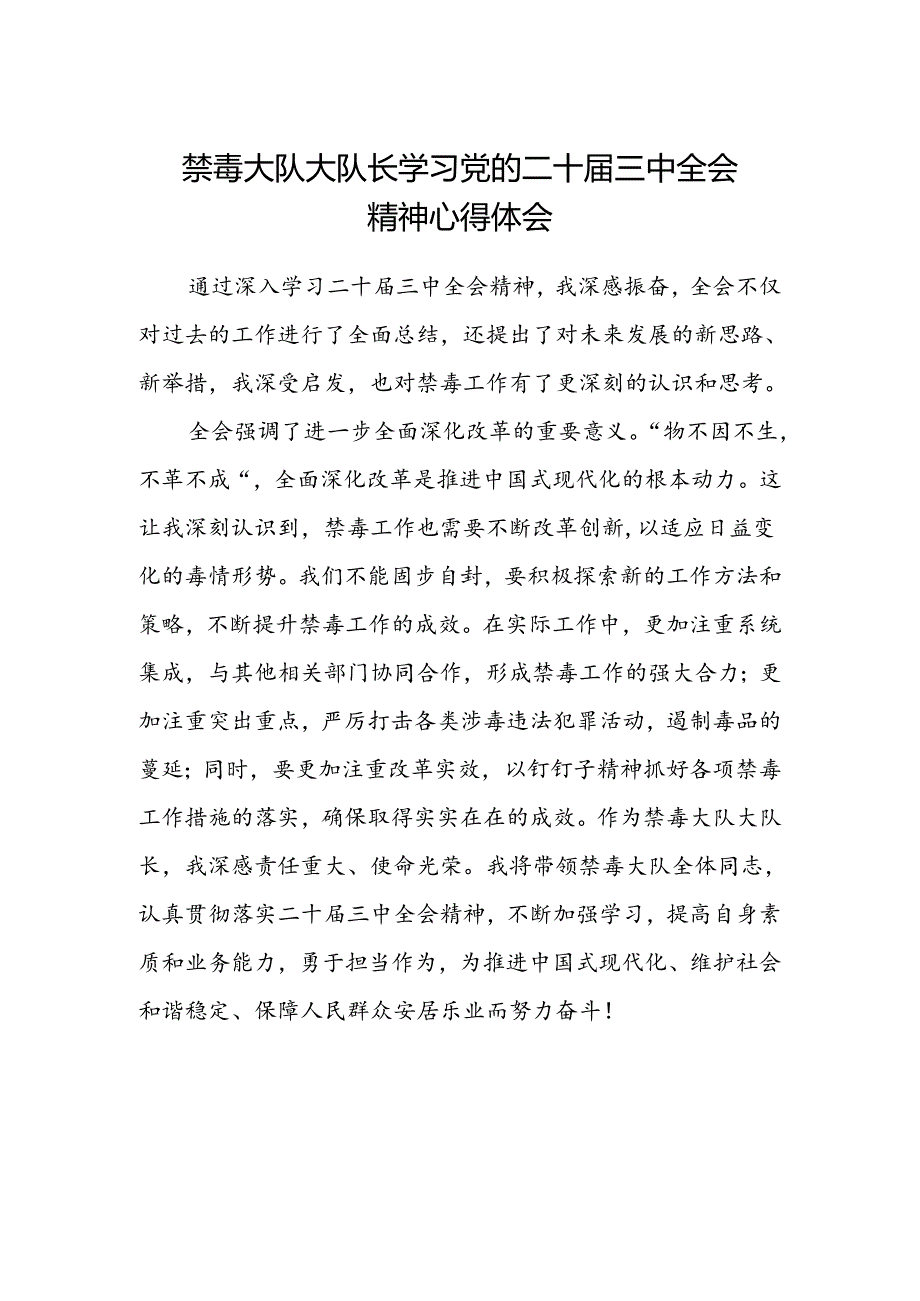 禁毒大队大队长学习党的二十届三中全会
精神心得体会
通过深入学习二十届三中全会精神，我深感振奋，全会不仅
对过去的工作进行了全面总结，还提出了对未来发展的新思路、
新举措，我深受启发，也对禁毒工作有了更深刻的认识和思考。
全会强调了进一步全面深化改革的重要意义。“物不因不生，
不革不成“，全面深化改革是推进中国式现代化的根本动力。这
让我深刻认识到，禁毒工作也需要不断改革创新,以适应日益变
化的毒情形势。我们不能固步自封，要积极探索新的工作方法和
策略，不断提升禁毒工作的成效。在实际工作中，更加注重系统
集成，与其他相关部门协同合作，形成禁毒工作的强大合力；更
加注重突出重点，严厉打击各类涉毒违法犯罪活动，遏制毒品的
蔓延；同时，要更加注重改革实效，以钉钉子精神抓好各项禁毒
工作措施的落实，确保取得实实在在的成效。作为禁毒大队大队
长，我深感责任重大、使命光荣。我将带领禁毒大队全体同志，
认真贯彻落实二十届三中全会精神，不断加强学习，提高自身素
质和业务能力，勇于担当作为，为推进中国式现代化、维护社会
和谐稳定、保障人民群众安居乐业而努力奋斗！